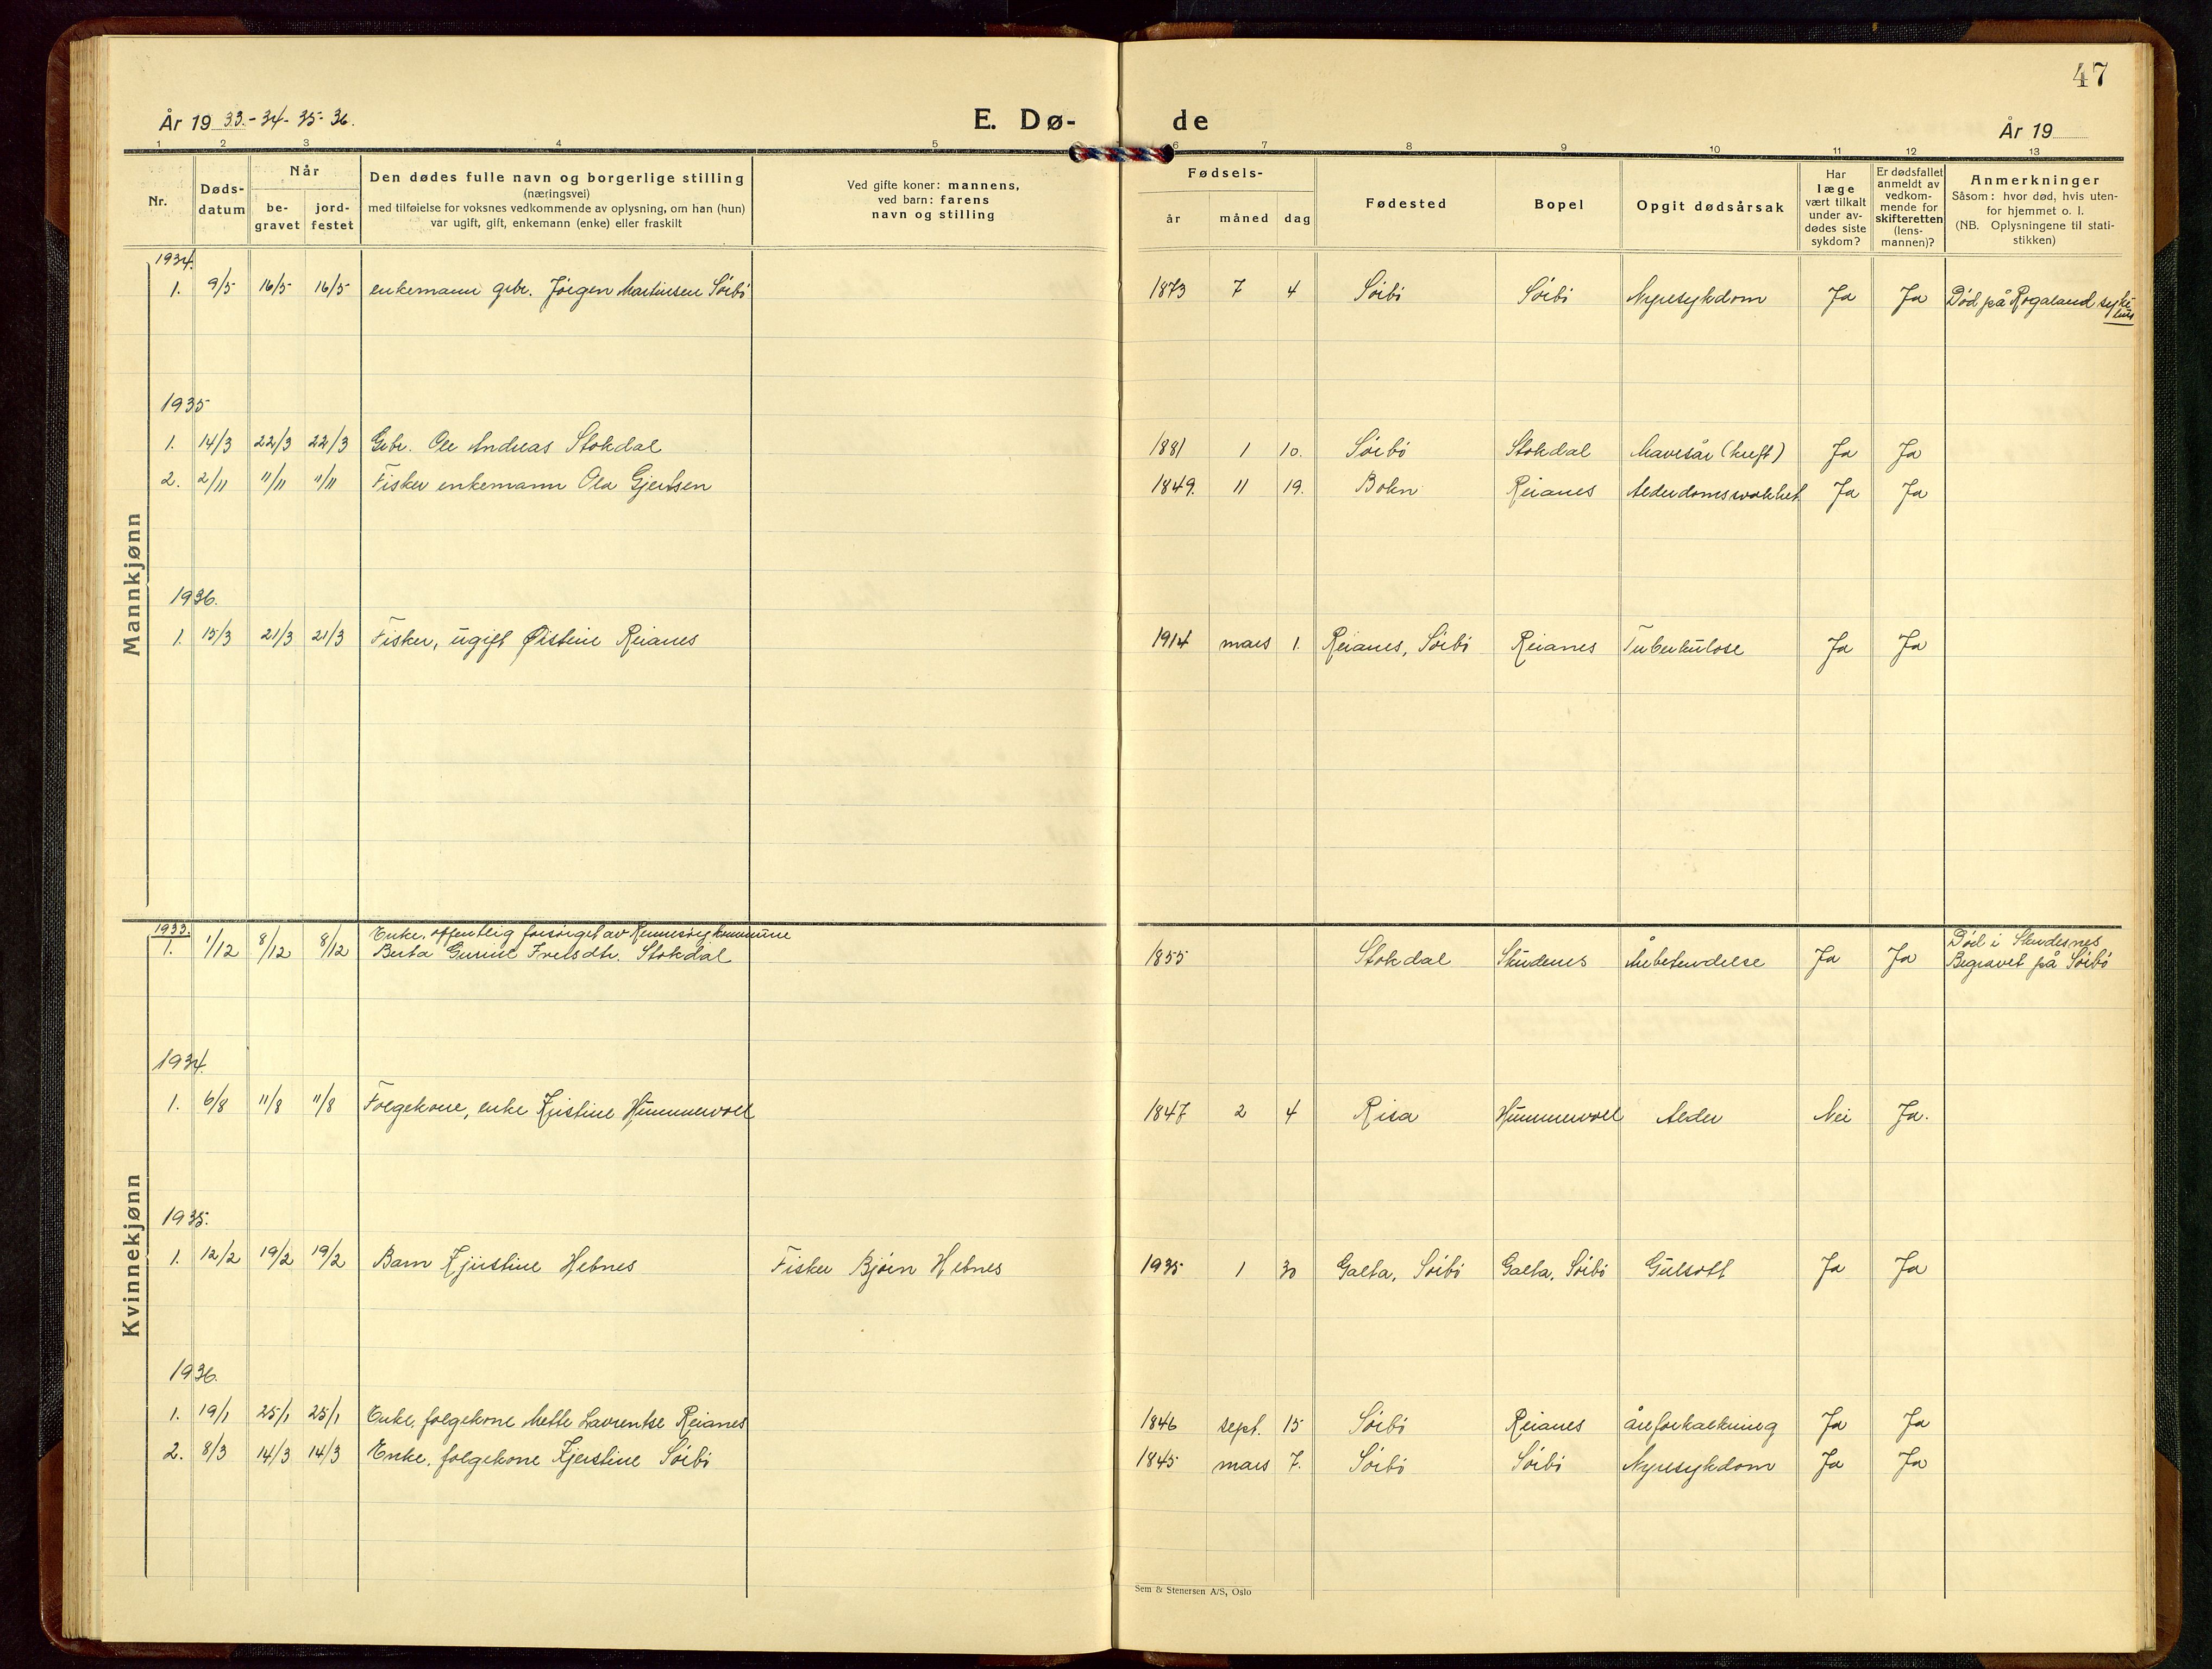 47
År 19 33.-34-35-36.
E. Dø-
de
År 19
1 2 3 4 5 6 7 8 9 10 11 12 13
Nr.
Døds-
datum
Når
be-
gravet
jord-
festet
Den dødes fulle navn og borgerlige stilling
(næringsvei)
med tilføielse for voksnes vedkommende av oplysning, om han (hun)
var ugift, gift, enkemann (enke) eller fraskilt
Ved gifte koner: mannens,
ved barn: farens
navn og stilling
Fødsels-
år måned dag
Fødested
Bopel
Opgit dødsårsak
Har
læge
vært tilkalt
under av-
dødes siste
sykdom?
Er dødsfallet
anmeldt av
vedkom-
mende for
skifteretten
(lens-
mannen)?
Anmerkninger
Såsom: hvor død, hvis uten-
for hjemmet o. l.
(NB. Oplysningene til stati-
stikken)
Mannkjønn
1934.
1. 9/5 16/5 16/5 enkemann gbr. Jörgen Martinsen Sörbö 1873 7 4 Sörbö Sörbö Nyresykdom Ja Ja Död på Rogaland syke
hus
1935
1. 14/3 22/3 22/3 Gbr. Ole Andreas Stokdal 1881 1 10. Sörbö Stokdal Mavesår (kreft) Ja Ja
2. 2/11 11/11 11/11 Fisker enkemann Ola Gjertsen 1849. 11 19. Bokn Reianes Alderdomssvakhet Ja Ja
1936.
1. 15/3 21/3 21/3 Fisker, ugift Øistine Reianes 1914 mars 1. Reianes, Sörbö Reianes Tuberkulose Ja Ja
Kvinnekjønn
1933.
Enke, offentlig forsörget av Rennesöy kommune
1. 1/12 8/12 8/12 Berta Gurine Stokdal 1855 Stokdal Skudenes Årebetendelse Ja Ja Död i Skudesnes
Begravet på Sörbö
1934.
1. 6/8 11/8 11/8 Folgekone, enke Kristine Hummervoll 1847 2 4 Risa Hummervoll Alder Nei Ja.
1935.
1. 12/2 19/2 19/2 Barn Kjerstine Hebnes Fisker Björn Hebnes 1935 1 30 Galta, Sörbö Galta, Sörbö Gulsott Ja Ja
1936.
1. 19/1 25/1 25/1 Enke, folgekone Mette Laurentse Reianes 1846 sept. 15 Sörbö Reianes åreforkalkning Ja Ja
2. 8/3 14/3 14/3 Enke, folgekone Kjerstine Sörbö 1845 mars 7. Sörbö Sörbö Nyresykdom Ja Ja
Sem & Stenersen A/S, Oslo